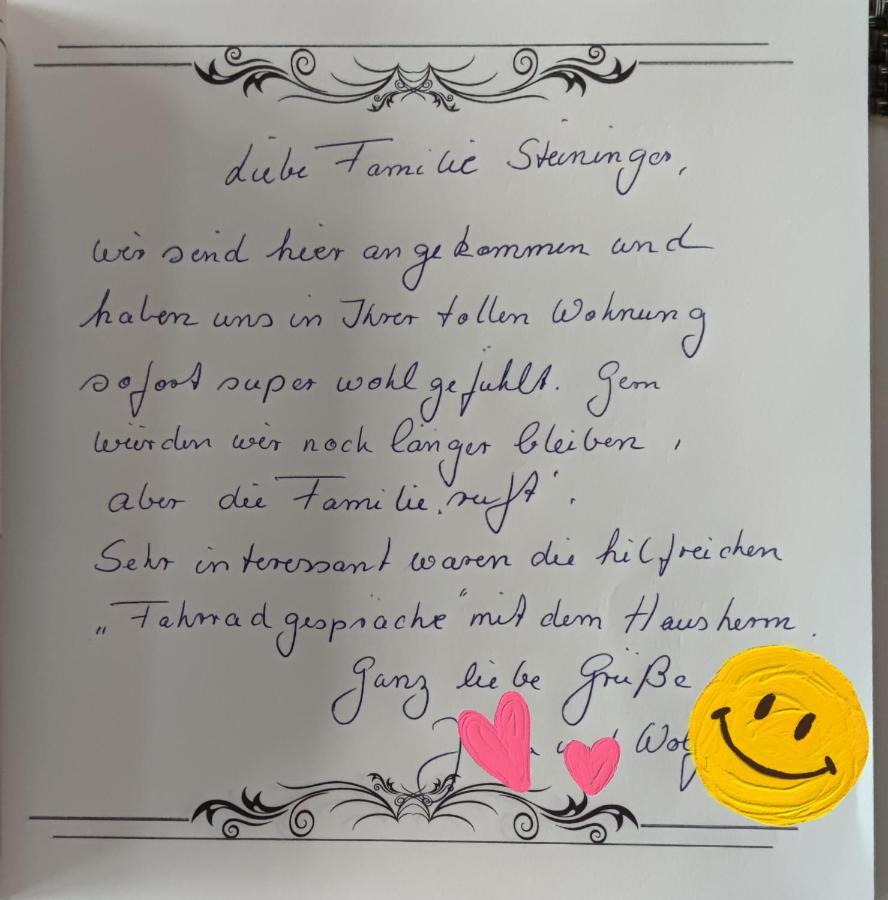 Liebe Familie Steininger,
wir sind hier angekommen und
haben uns in Ihrer tollen Wohnung
sofort super wohl gefühlt. Gern
würden wir noch länger bleiben,
aber die Familie "ruft".
Sehr interessant waren die hilfreichen
„Fahrradgespräche" mit dem Hausherrn.
Ganz liebe Grüße